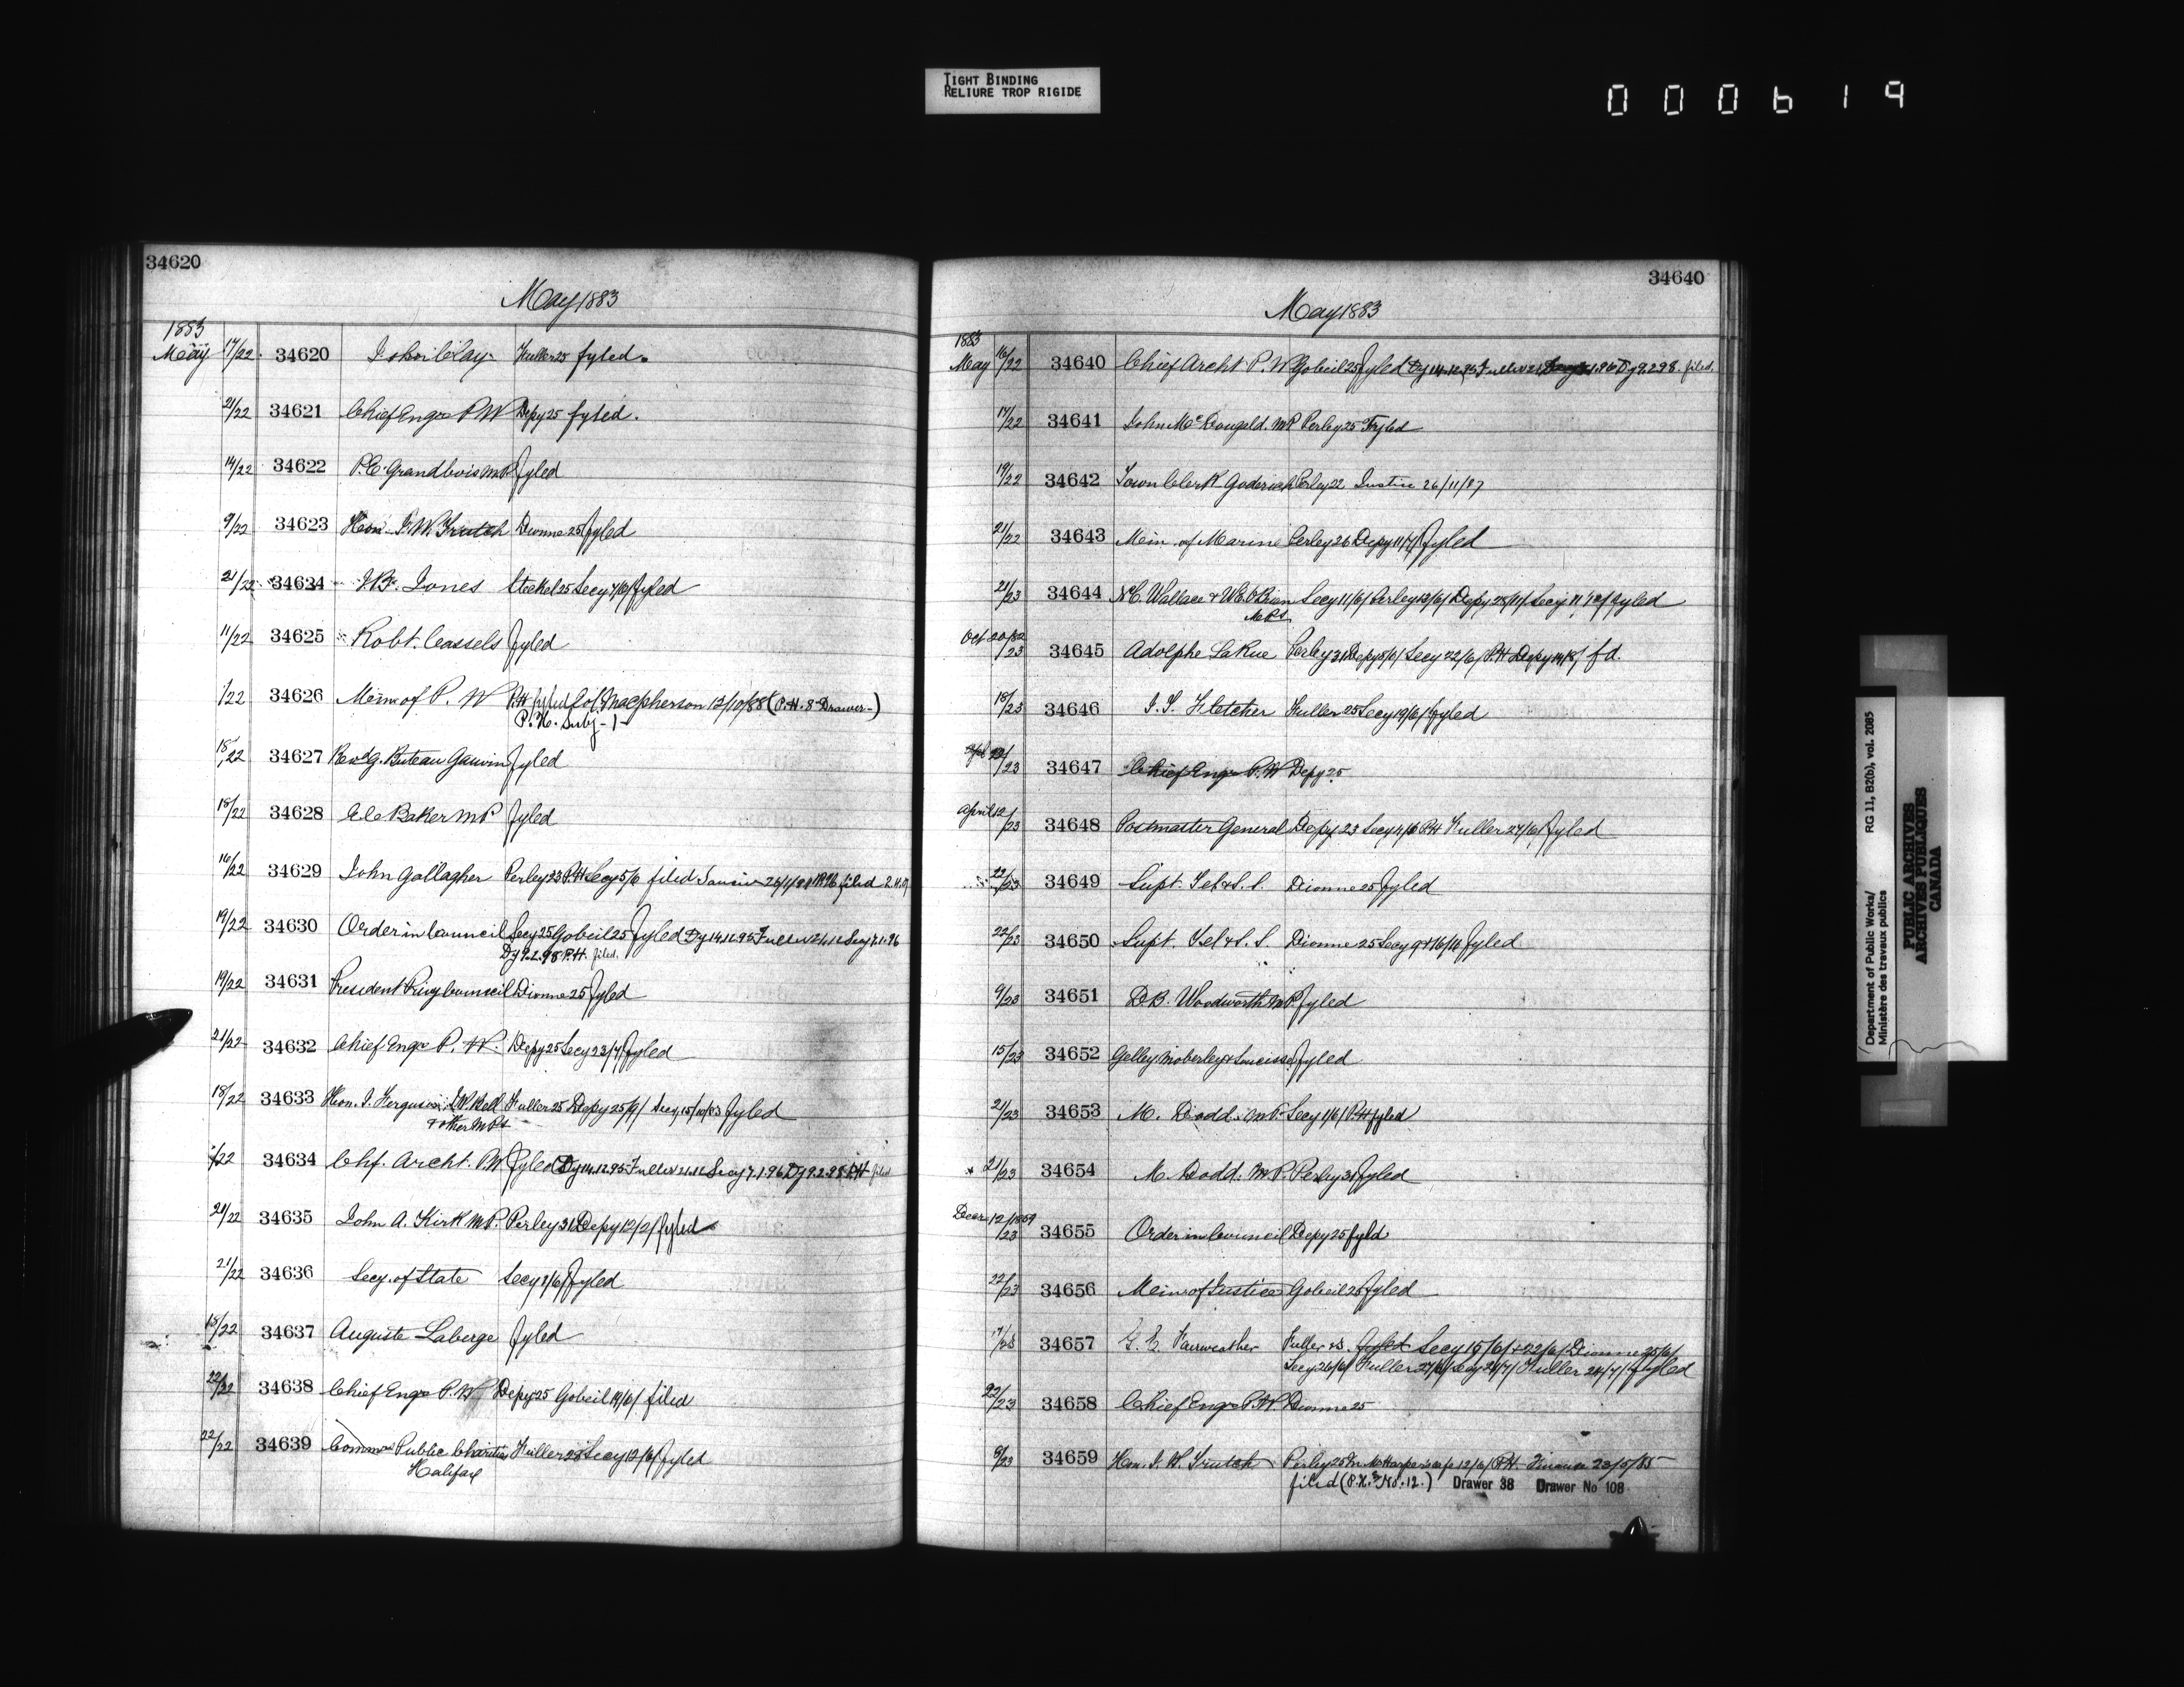 TIGHT BINDING
RELIURE TROP RIGIDE
000619
34620
May 1883
1883
May 17/22 34620 John Clay Fuller 25 fyled.
21/22 34621 Chief Engr P W Depy 25 fyled.
14/22 34622 P.E. Grandbois MP fyled
9/22 34623 Hon. J. W. Trutch Dionne 25 fyled
21/22 34624 Jones Steckel 25 Secy 4/6/ fyled
11/22 34625 Robt. Cassels fyled
/22 34626 Mem of P. W P.H fyled Col. Macpherson 12/10/88 (P.H. 8 Drawer-)
P.H. Subj-1-
18/22 34627 Buteau fyled
18/22 34628 Baker MP fyled
16/22 34629 John Gallagher Perley 23 P.H Secy 5/6 filed
19/22 34630 Order in Council Secy 25 Gobeil 25 fyled Dy 14.12.95 Fuller 21.12 Secy 7.1.96
Dy 9.2.98 P.H. filed.
19/22 34631 President Privy Council Dionne 25 fyled
21/22 34632 Chief Engr P. W. Depy 25 Secy 23/7/ fyled
18/22 34633 Hon. J. Ferguson, J.W. Bell Fuller 25 Depy 25/9/ Secy 15/10/83 fyled
& other MPs
/22 34634 Chf. Archt. PW fyled Dy 14.12.95 Fuller 21.12 Secy 7.1.96 Dy 9.2.98 P.H filed
21/22 34635 John A. Kirk MP. Perley 31 Depy 12/2/ fyled
21/22 34636 Secy. of State Secy 8/6/ fyled
15/22 34637 Auguste Laberge fyled
22/22 34638 Chief Engr P. W. Depy 25 Gobeil 19/6/ filed
22/22 34639 Commrs Public Charities Fuller 28 Secy 12/6/ fyled
Halifax
34640
May 1883
1883
May 16/22 34640 Chief Archt P. W Gobeil 25 fyled Dy 14.12.95 Fuller 21 1.96 Dy 9.2.98. filed.
17/22 34641 John McDougald. MP Perley 25 Fyled
19/22 34642 Town Clerk Goderich Perley 22 Justice 26/11/87
21/22 34643 Min of Marine Perley 26 Depy 11/7/ fyled
21/23 34644 N.C. Wallace & W.E. O'Brien Secy 11/6/ Perley 13/6/ Depy Secy fyled
MPs
Oct 20/82 /23 34645 Adolphe LaRue Perley 31 Depy 5/6/ Secy 22/6/ P.H Depy fd.
18/23 34646 Fletcher Fuller 25 Secy 19/6/ fyled
/23 34647 Chief Engr P. W Depy 25
April 12/23 34648 Postmaster General Depy 23 Secy 4/6 P.H Fuller 27/6/ fyled
22/23 34649 Supt. Tel & S. S. Dionne 25 fyled
22/23 34650 Supt. Tel & S. S. Dionne 25 Secy fyled
9/23 34651 D.B. Woodworth MP. fyled
15/23 34652 Gelley Moberley & fyled
21/23 34653 M. Dodd. M.P. Secy 1/6/ P.H fyled
21/23 34654 M. Dodd: M.P. Perley 31 fyled
Decr 12/1859 /23 34655 Order in Council Depy 25 fyld
22/23 34656 Min of Justice Gobeil 25 fyled
17/23 34657 G. E. Fairweather Fuller 25. fyled Secy 15/6/ & 22/6/ Dionne 25/6/
Secy 26/6/ Fuller 27/6/ Secy 21/7/ Fuller 24/7/ fyled
22/23 34658 Chief Engr P.W. Dionne 25
8/23 34659 Hon. J. W. Trutch Perley 25 12/6/ P.H. Finance 23/5/85
filed (P.H. No. 12.) Drawer 38 Drawer No 108
Department of Public Works/
Ministère des travaux publics
RG 11, B2(b), vol. 2085
PUBLIC ARCHIVES
ARCHIVES PUBLIQUES
CANADA